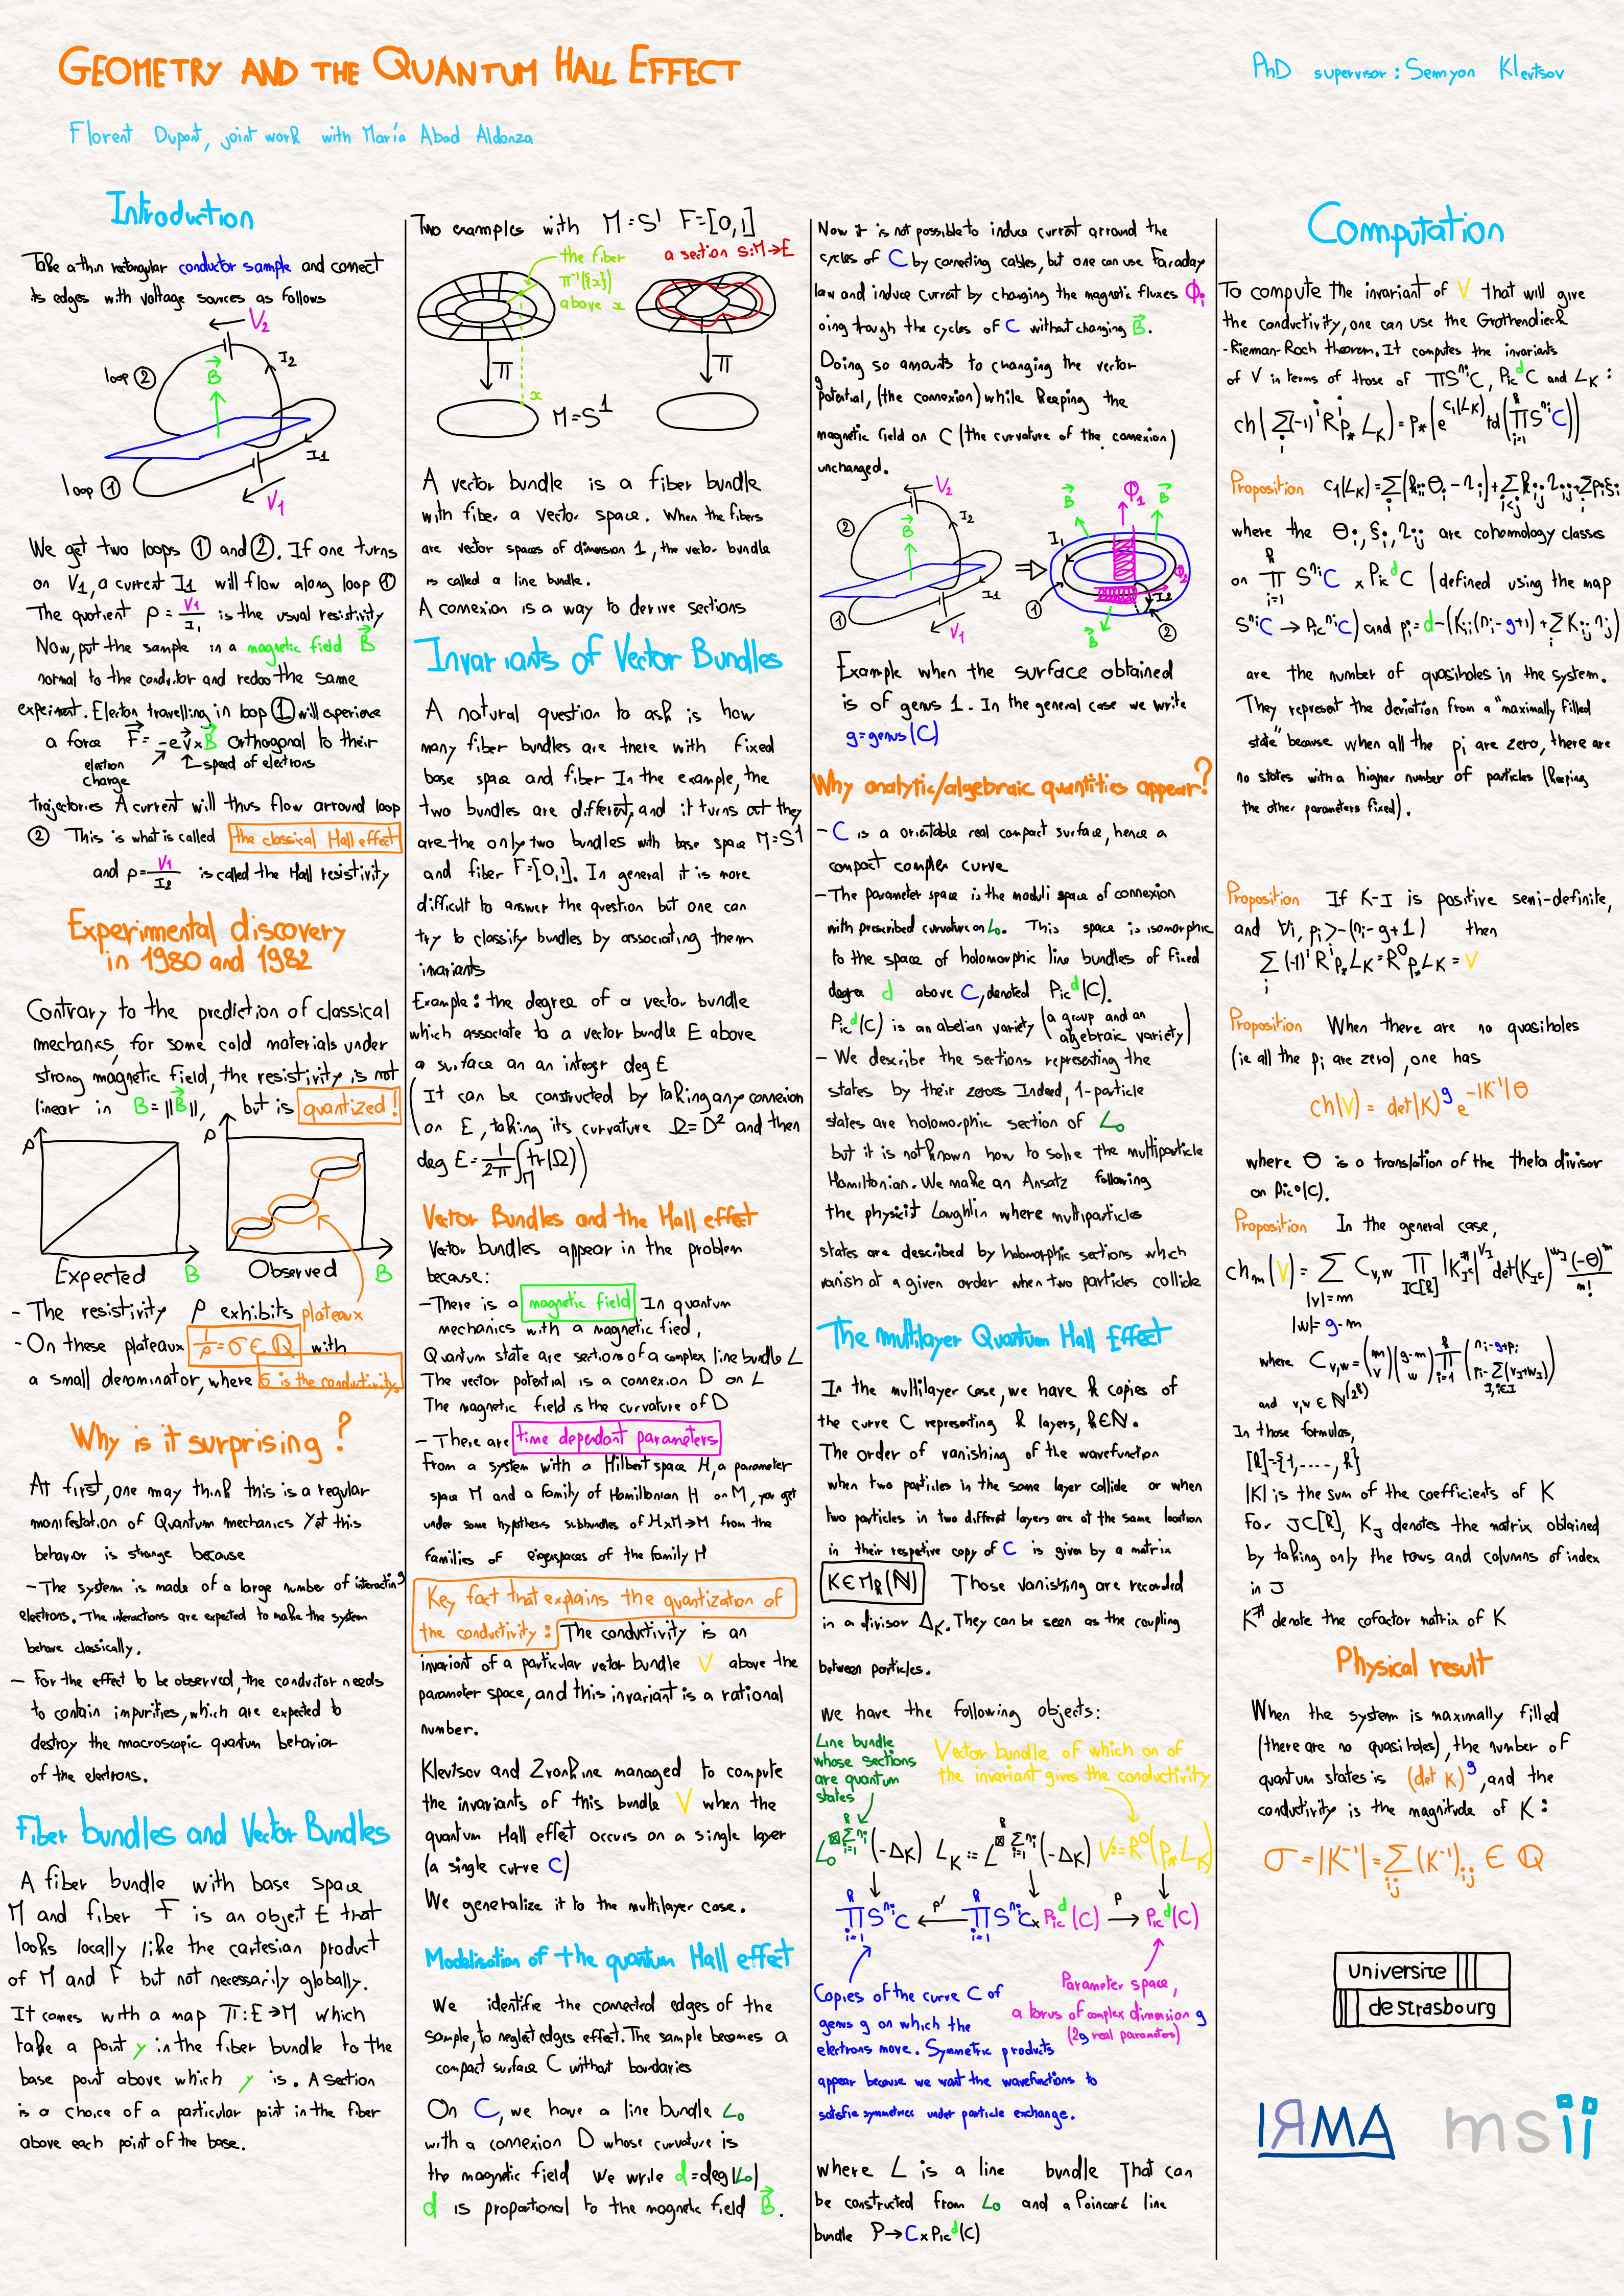 GEOMETRY AND THE QUANTUM HALL EFFECT
PhD supervisor: Semyon Klevtsov
Florent Dupont, joint work with María Abad Aldonza
Introduction
Take a thin rectangular conductor sample and connect
its edges with voltage sources as follows
V₂
I₂
loop ②
B⃗
I₁
loop ①
V₁
We get two loops ① and ②. If one turns
on V₁, a current I₁ will flow along loop ①
The quotient ρ = V₁/I₁ is the usual resistivity
Now, put the sample in a magnetic field B⃗
normal to the conductor and redoo the same
experiment. Electron travelling in loop ① will experience
a force F⃗ = -e v⃗ × B⃗ orthogonal to their
electron charge
speed of electrons
trajectories A current will thus flow arround loop
② This is what is called the classical Hall effect
and ρ = V₁/I₂ is called the Hall resistivity
Experimental discovery
in 1980 and 1982
Contrary to the prediction of classical
mechanics, for some cold materials under
strong magnetic field, the resistivity is not
linear in B = ||B⃗||, but is quantized!
ρ
ρ
Expected B
Observed B
- The resistivity ρ exhibits plateaux
- On these plateaux 1/ρ = σ ∈ ℚ with
a small denominator, where σ is the conductivity.
Why is it surprising?
At first, one may think this is a regular
manifestation of Quantum mechanics Yet this
behavior is strange because
- The system is made of a large number of interacting
electrons. The interactions are expected to make the system
behave classically.
- For the effect to be observed, the conductor needs
to contain impurities, which are expected to
destroy the macroscopic quantum behavior
of the electrons.
Fiber bundles and Vector Bundles
A fiber bundle with base space
M and fiber F is an object E that
looks locally like the cartesian product
of M and F but not necessarily globally.
It comes with a map π: E → M which
take a point y in the fiber bundle to the
base point above which y is. A section
is a choice of a particular point in the fiber
above each point of the base.
Two examples with M = S¹ F = [0,1]
the fiber
π⁻¹({x})
above x
a section s: M → E
π
π
x
M = S¹
A vector bundle is a fiber bundle
with fiber a vector space. When the fibers
are vector spaces of dimension 1, the vector bundle
is called a line bundle.
A connexion is a way to derive sections
Invariants of Vector Bundles
A natural question to ask is how
many fiber bundles are there with fixed
base space and fiber In the example, the
two bundles are different, and it turns out they
are the only two bundles with base space M = S¹
and fiber F = [0,1]. In general it is more
difficult to answer the question but one can
try to classify bundles by associating them
invariants
Example: the degree of a vector bundle
which associate to a vector bundle E above
a surface an an integer deg E
(It can be constructed by taking any connexion
on E, taking its curvature Ω = D² and then
deg E = 1/2π ∫_M tr(Ω))
Vector Bundles and the Hall effect
Vector bundles appear in the problem
because:
- There is a magnetic field In quantum
mechanics with a magnetic fied,
Quantum state are sections of a complex line bundle L
The vector potential is a connexion D on L
The magnetic field is the curvature of D
- There are time dependant parameters
From a system with a Hilbert space H, a parameter
space M and a family of Hamiltonian H on M, you get
under some hypothesis subbundles of H×M→M from the
families of eigenspaces of the family H
Key fact that explains the quantization of
the conductivity: The conductivity is an
invariant of a particular vector bundle V above the
parameter space, and this invariant is a rational
number.
Klevtsov and Zvonkine managed to compute
the invariants of this bundle V when the
quantum Hall effect occurs on a single layer
(a single curve C)
We generalize it to the multilayer case.
Modelisation of the quantum Hall effect
We identifie the connected edges of the
sample, to neglect edges effect. The sample becomes a
compact surface C without boundaries
On C, we have a line bundle L₀
with a connexion D whose curvature is
the magnetic field We write d = deg(L₀)
d is proportional to the magnetic field B⃗.
Now it is not possible to induce current arround the
cycles of C by connecting cables, but one can use Faraday
law and induce current by changing the magnetic fluxes Φᵢ
oing trough the cycles of C without changing B⃗.
Doing so amounts to changing the vector
potential, (the connexion) while keeping the
magnetic field on C (the curvature of the connexion)
unchanged.
V₂
②
I₂
B⃗
I₁
①
V₁
⇒
B⃗
Φ₁
B⃗
I₁
Φ₂
I₂
①
B⃗
②
Example when the surface obtained
is of genus 1. In the general case we write
g = genus(C)
Why analytic/algebraic quantities appear?
- C is a orientable real compact surface, hence a
compact complex curve
- The parameter space is the moduli space of connexion
with prescribed curvature on L₀. This space is isomorphic
to the space of holomorphic line bundles of fixed
degree d above C, denoted Picᵈ(C).
Picᵈ(C) is an abelian variety (a group and an algebraic variety)
- We describe the sections representing the
states by their zeroes Indeed, 1-particle
states are holomorphic section of L₀
but it is not known how to solve the multiparticle
Hamiltonian. We make an Ansatz following
the physicit Laughlin where multiparticles
states are described by holomorphic sections which
vanish at a given order when two particles collide
The multilayer Quantum Hall Effect
In the multilayer case, we have k copies of
the curve C representing k layers, k ∈ ℕ.
The order of vanishing of the wavefunction
when two particles in the same layer collide or when
two particles in two different layers are at the same location
in their respective copy of C is given by a matrix
K ∈ M_k(ℕ) Those vanishing are recorded
in a divisor Δ_K. They can be seen as the coupling
between particles.
we have the following objects:
Line bundle
whose sections
are quantum
states
Vector bundle of which on of
the invariant gives the conductivity
L₀^{⊠ Σ_{i=1}^k nᵢ}(-Δ_K) L_K := L^{⊠ Σ_{i=1}^k nᵢ}(-Δ_K) V := R⁰(p_* L_K)
∏_{i=1}^k S^{nᵢ}C ←p'— ∏_{i=1}^k S^{nᵢ}C × Picᵈ(C) —p→ Picᵈ(C)
Copies of the curve C of
genus g on which the
electrons move. Symmetric products
appear because we want the wavefunctions to
satisfie symmetries under particle exchange.
Parameter space,
a torus of complex dimension g
(2g real parameters)
where L is a line bundle That can
be constructed from L₀ and a Poincaré line
bundle P → C × Picᵈ(C)
Computation
To compute the invariant of V that will give
the conductivity, one can use the Grothendieck
-Rieman-Roch theorem. It computes the invariants
of V in terms of those of ∏S^{nᵢ}C, Picᵈ C and L_K:
ch(Σ_i (-1)^i R^i p_* L_K) = p_*(e^{c₁(L_K)} td(∏_{i=1}^k S^{nᵢ}C))
Proposition c₁(L_K) = Σ_i (k_{ii} θᵢ - η_i) + Σ_{i<j} k_{ij} η_{ij} + Σ_i pᵢ ξᵢ
where the θᵢ, ξᵢ, η_{ij} are cohomology classes
on ∏_{i=1}^k S^{nᵢ}C × Picᵈ C (defined using the map
S^{nᵢ}C → Pic^{nᵢ}C) and pᵢ = d - (K_{ii}(nᵢ - g + 1) + Σ_j K_{ij} n_j)
are the number of quasiholes in the system.
They represent the deviation from a "maximally filled
state" because when all the pᵢ are zero, there are
no states with a higher number of particles (keeping
the other parameters fixed).
Proposition If K-I is positive semi-definite,
and ∀i, pᵢ > -(nᵢ - g + 1) then
Σ_i (-1)^i R^i p_* L_K = R⁰ p_* L_K = V
Proposition When there are no quasiholes
(ie all the pᵢ are zero), one has
ch(V) = det(K)^g e^{-|K⁻¹|θ}
where θ is a translation of the theta divisor
on Pic⁰(C).
Proposition In the general case,
ch_m(V) = Σ_{|v|=m, |w|=g-m} C_{v,w} ∏_{J⊂[k]} |K^#_{J^c}|^{v_J} det(K_{J^c})^{w_J} (-θ)^m / m!
where C_{v,w} = (m v)(g-m w) ∏_{i=1}^k (nᵢ-g+pᵢ pᵢ-Σ_{J, i∈J}(v_J+w_J))
and v,w ∈ ℕ^(2^k)
In those formulas,
[k] = {1,....,k}
|K| is the sum of the coefficients of K
For J⊂[k], K_J denotes the matrix obtained
by taking only the rows and columns of index
in J
K^# denote the cofactor matrix of K
Physical result
When the system is maximally filled
(there are no quasiholes), the number of
quantum states is (det K)^g, and the
conductivity is the magnitude of K:
σ = |K⁻¹| = Σ_{ij} (K⁻¹)_{ij} ∈ ℚ
Universite
de strasbourg
IRMA
msii